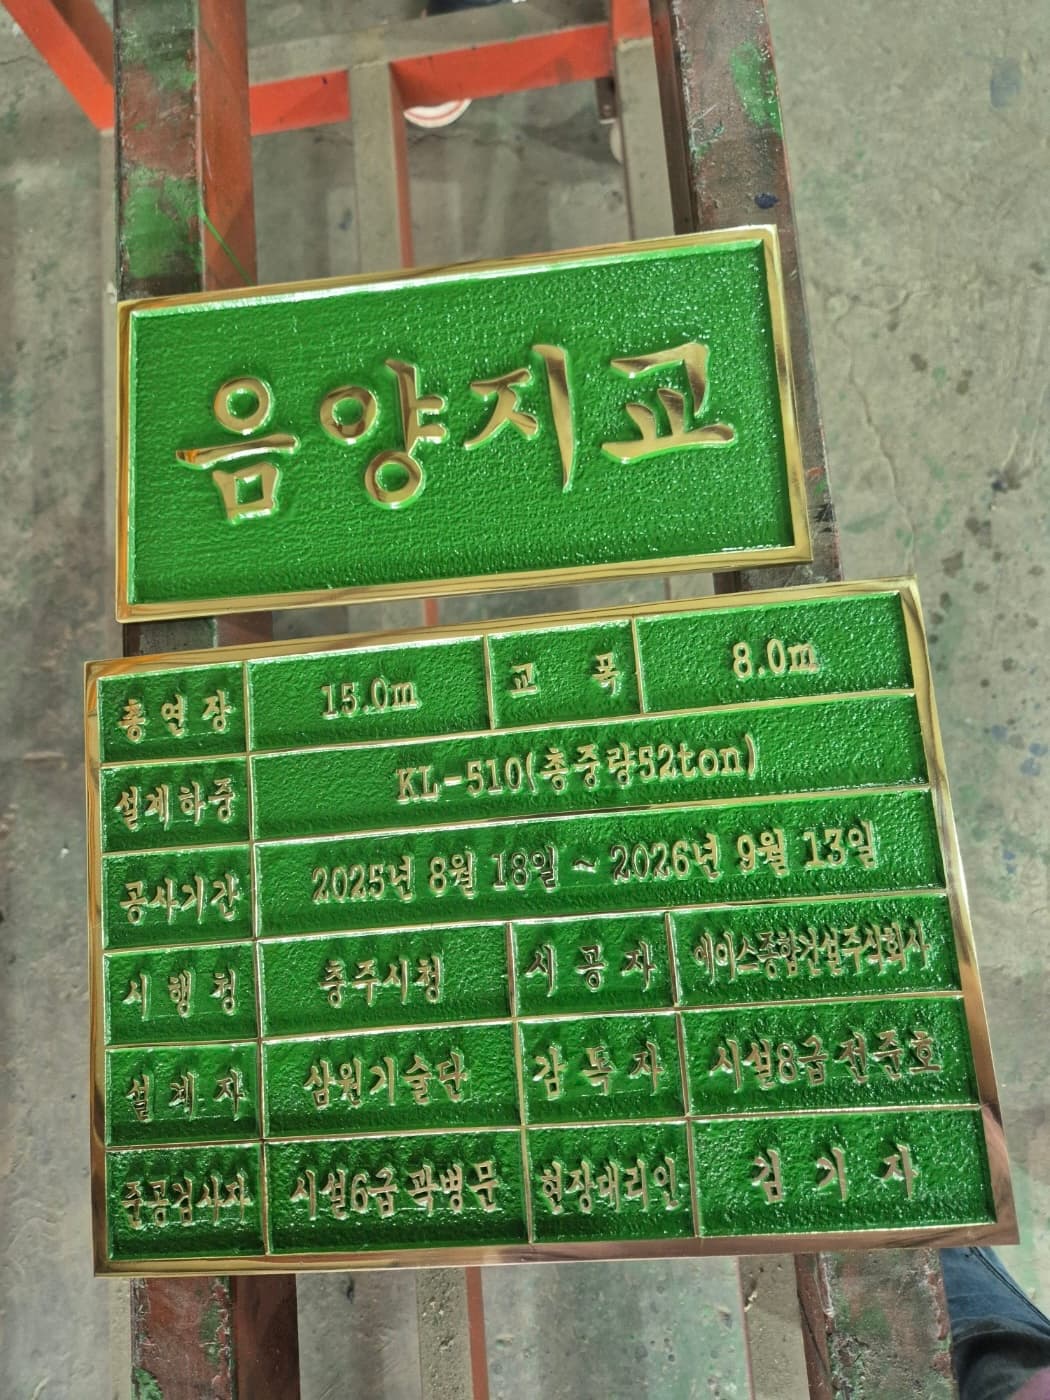 음양지교
총 연 장 15.0m 교 폭 8.0m
설계하중 KL-510(총중량52ton)
공사기간 2025년 8월 18일 ~ 2026년 9월 13일
시 행 청 충주시청 시 공 자 에이스종합건설주식회사
설 계 자 삼원기술단 감 독 자 시설8급 전준호
준공검사자 시설6급 곽병무 현장대리인 김 기 자